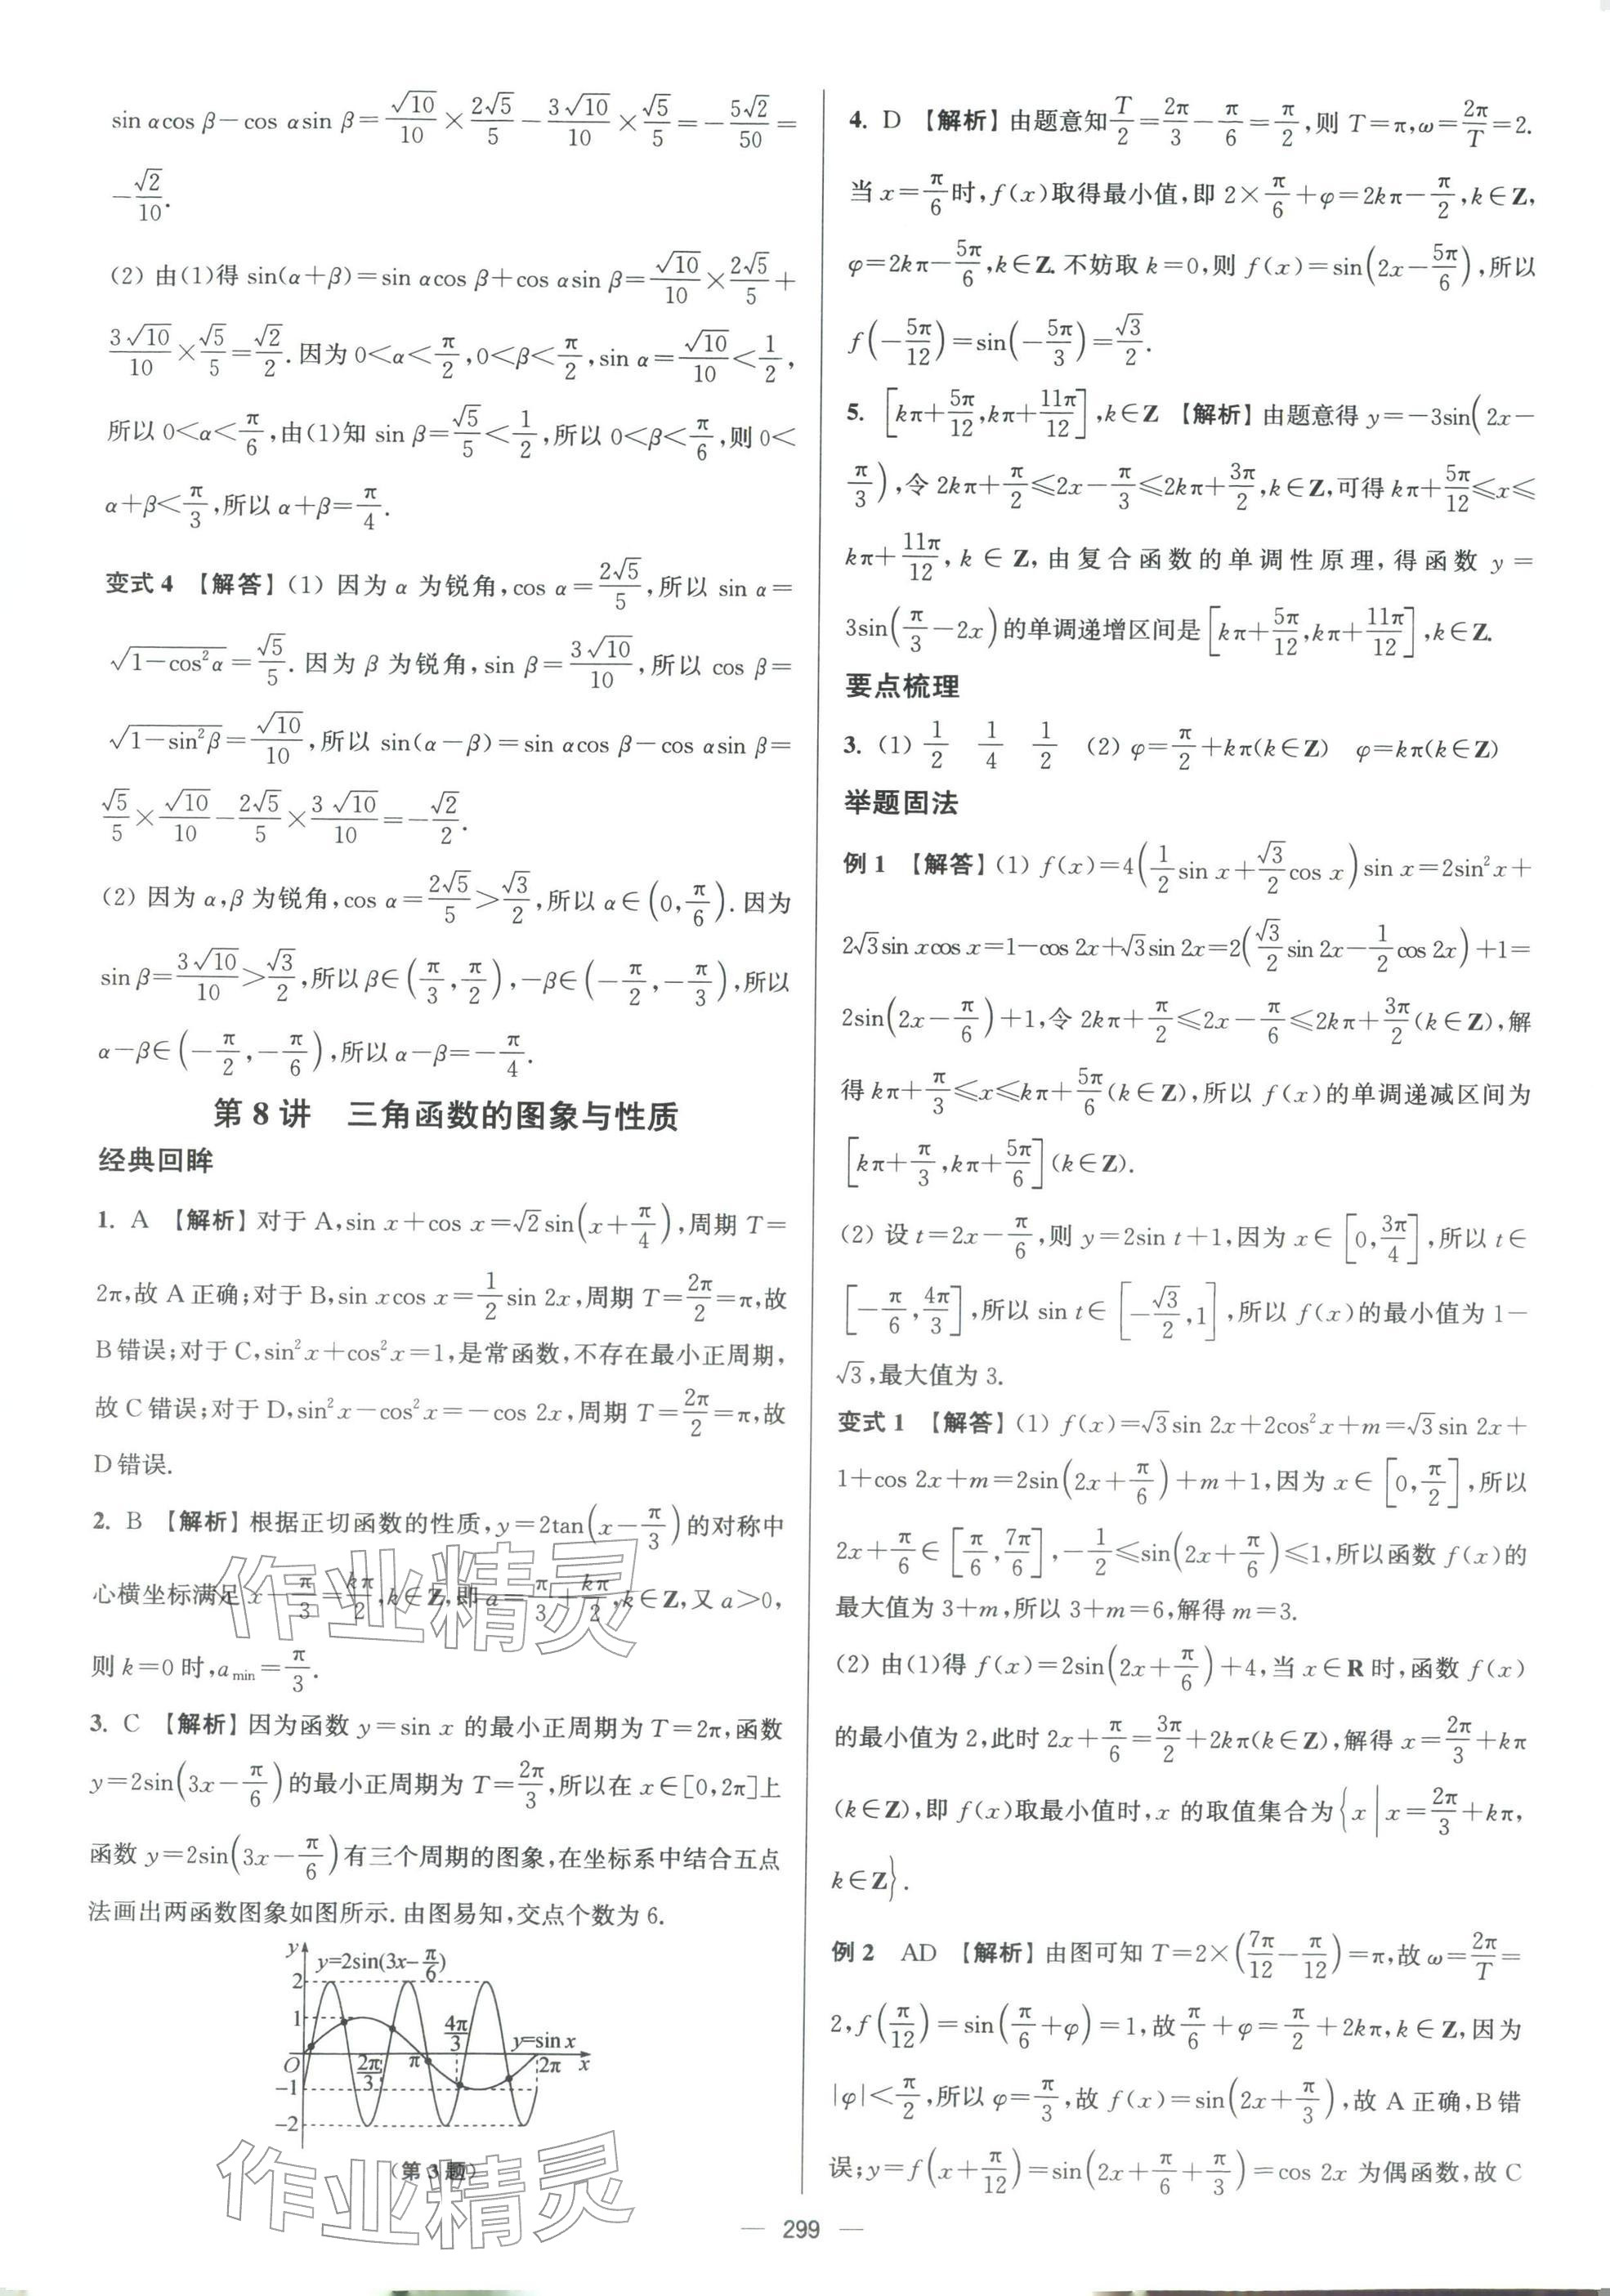 sin αcos β－cos αsin β＝√10/10×2√5/5－3√10/10×√5/5＝－5√2/50＝
－√2/10.
(2) 由(1)得 sin(α＋β)＝sin αcos β＋cos αsin β＝√10/10×2√5/5＋
3√10/10×√5/5＝√2/2.因为 0＜α＜π/2,0＜β＜π/2,sin α＝√10/10＜1/2,
所以 0＜α＜π/6,由(1)知 sin β＝√5/5＜1/2,所以 0＜β＜π/6,则 0＜
α＋β＜π/3,所以 α＋β＝π/4.
变式 4 【解答】(1) 因为 α 为锐角,cos α＝2√5/5,所以 sin α＝
√(1－cos²α)＝√5/5.因为 β 为锐角,sin β＝3√10/10,所以 cos β＝
√(1－sin²β)＝√10/10,所以 sin(α－β)＝sin αcos β－cos αsin β＝
√5/5×√10/10－2√5/5×3√10/10＝－√2/2.
(2) 因为 α,β 为锐角,cos α＝2√5/5＞√3/2,所以 α∈(0,π/6).因为
sin β＝3√10/10＞√3/2,所以 β∈(π/3,π/2),－β∈(－π/2,－π/3),所以
α－β∈(－π/2,－π/6),所以 α－β＝－π/4.
第 8 讲 三角函数的图象与性质
经典回眸
1. A 【解析】对于 A,sin x＋cos x＝√2sin(x＋π/4),周期 T＝
2π,故 A 正确;对于 B,sin xcos x＝1/2 sin 2x,周期 T＝2π/2＝π,故
B 错误;对于 C,sin²x＋cos²x＝1,是常函数,不存在最小正周期,
故 C 错误;对于 D,sin²x－cos²x＝－cos 2x,周期 T＝2π/2＝π,故
D 错误.
2. B 【解析】根据正切函数的性质,y＝2tan(x－π/3)的对称中
心横坐标满足 x－π/3＝kπ/2,k∈Z,即 a＝π/3＋kπ/2,k∈Z,又 a＞0,
则 k＝0 时,a min＝π/3.
3. C 【解析】因为函数 y＝sin x 的最小正周期为 T＝2π,函数
y＝2sin(3x－π/6)的最小正周期为 T＝2π/3,所以在 x∈[0,2π]上
函数 y＝2sin(3x－π/6)有三个周期的图象,在坐标系中结合五点
法画出两函数图象如图所示.由图易知,交点个数为 6.
y
y=2sin(3x-π/6)
2
1
4π/3
y=sin x
O
2π/3
π
2π
x
-1
-2
(第 3 题)
作业精灵
作业精灵
4. D 【解析】由题意知T/2＝2π/3－π/6＝π/2,则 T＝π,ω＝2π/T＝2.
当 x＝π/6时,f(x)取得最小值,即 2×π/6＋φ＝2kπ－π/2,k∈Z,
φ＝2kπ－5π/6,k∈Z.不妨取 k＝0,则 f(x)＝sin(2x－5π/6),所以
f(－5π/12)＝sin(－5π/3)＝√3/2.
5. [kπ＋5π/12,kπ＋11π/12],k∈Z 【解析】由题意得 y＝－3sin(2x－
π/3),令 2kπ＋π/2≤2x－π/3≤2kπ＋3π/2,k∈Z,可得 kπ＋5π/12≤x≤
kπ＋11π/12,k∈Z,由复合函数的单调性原理,得函数 y＝
3sin(π/3－2x)的单调递增区间是[kπ＋5π/12,kπ＋11π/12],k∈Z.
要点梳理
3. (1) 1/2 1/4 1/2 (2) φ＝π/2＋kπ(k∈Z) φ＝kπ(k∈Z)
举题固法
例 1 【解答】(1) f(x)＝4(1/2 sin x＋√3/2 cos x)sin x＝2sin²x＋
2√3sin xcos x＝1－cos 2x＋√3sin 2x＝2(√3/2 sin 2x－1/2 cos 2x)＋1＝
2sin(2x－π/6)＋1,令 2kπ＋π/2≤2x－π/6≤2kπ＋3π/2(k∈Z),解
得 kπ＋π/3≤x≤kπ＋5π/6(k∈Z),所以 f(x)的单调递减区间为
[kπ＋π/3,kπ＋5π/6](k∈Z).
(2) 设 t＝2x－π/6,则 y＝2sin t＋1,因为 x∈[0,3π/4],所以 t∈
[－π/6,4π/3],所以 sin t∈[－√3/2,1],所以 f(x)的最小值为 1－
√3,最大值为 3.
变式 1 【解答】(1) f(x)＝√3sin 2x＋2cos²x＋m＝√3sin 2x＋
1＋cos 2x＋m＝2sin(2x＋π/6)＋m＋1,因为 x∈[0,π/2],所以
2x＋π/6∈[π/6,7π/6],－1/2≤sin(2x＋π/6)≤1,所以函数 f(x)的
最大值为 3＋m,所以 3＋m＝6,解得 m＝3.
(2) 由(1)得 f(x)＝2sin(2x＋π/6)＋4,当 x∈R 时,函数 f(x)
的最小值为 2,此时 2x＋π/6＝3π/2＋2kπ(k∈Z),解得 x＝2π/3＋kπ
(k∈Z),即 f(x)取最小值时,x 的取值集合为{x|x＝2π/3＋kπ,
k∈Z}.
例 2 AD 【解析】由图可知 T＝2×(7π/12－π/12)＝π,故 ω＝2π/T＝
2,f(π/12)＝sin(π/6＋φ)＝1,故π/6＋φ＝π/2＋2kπ,k∈Z,因为
|φ|＜π/2,所以 φ＝π/3,故 f(x)＝sin(2x＋π/3),故 A 正确,B 错
误;y＝f(x＋π/12)＝sin(2x＋π/6＋π/3)＝cos 2x 为偶函数,故 C
— 299 —